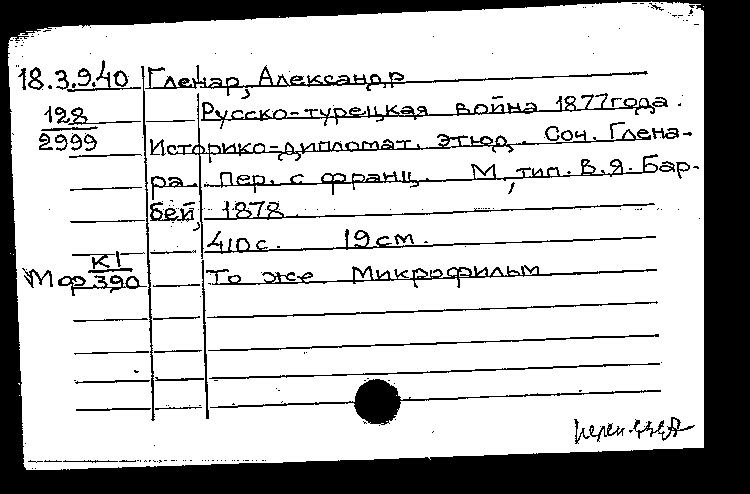 18.3.9.40 Гленар, Александр
128 Русско-турецкая война 1877 года.
2999 Историко-дипломат. этюд. Соч. Глена-
ра. Пер. с франц. М., тип. В.Я. Бар-
бей, 1878.
410 с. 19 см.
К1
Мф 390 То же Микрофильм